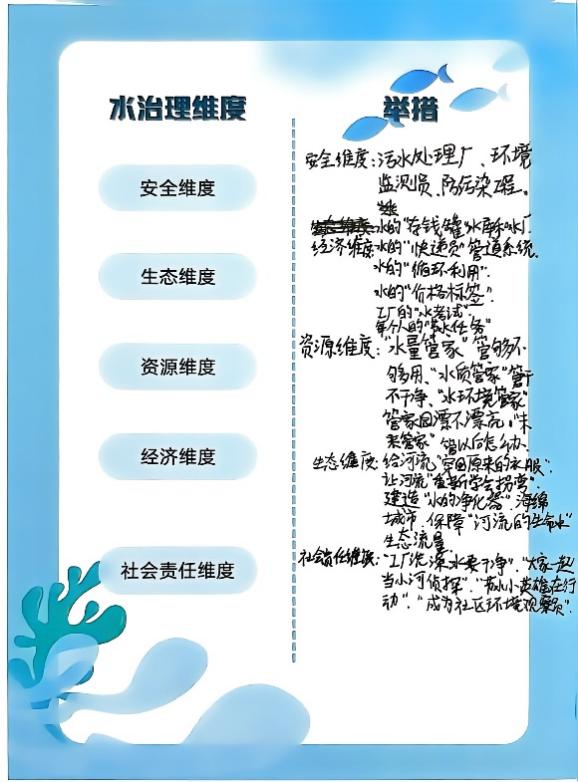 水治理维度
举措
安全维度
生态维度
资源维度
经济维度
社会责任维度
安全维度:污水处理厂、环境
监测员、防污染工程。
经济维度:水的“存钱罐”水库和水厂
水的“快递员”管道系统.
水的“循环利用”.
水的“价格标签”.
工厂的“水考试”.
每个人的“节水任务”
资源维度:“水量管家”管够不
够用、“水质管家”管干
不干净、“水环境管家”
管家园漂不漂亮、“未
来管家”管以后怎么办.
生态维度:给河流“穿回原来的衣服”.
让河流“重新学会拐弯”.
建造“水的净化器”.海绵
城市.保障“河流的生命水”
生态流量.
社会责任维度:“工厂洗澡水要干净”.“大家一起
当小河侦探”.“节水小英雄在行
动”.“成为社区环境观察员”.